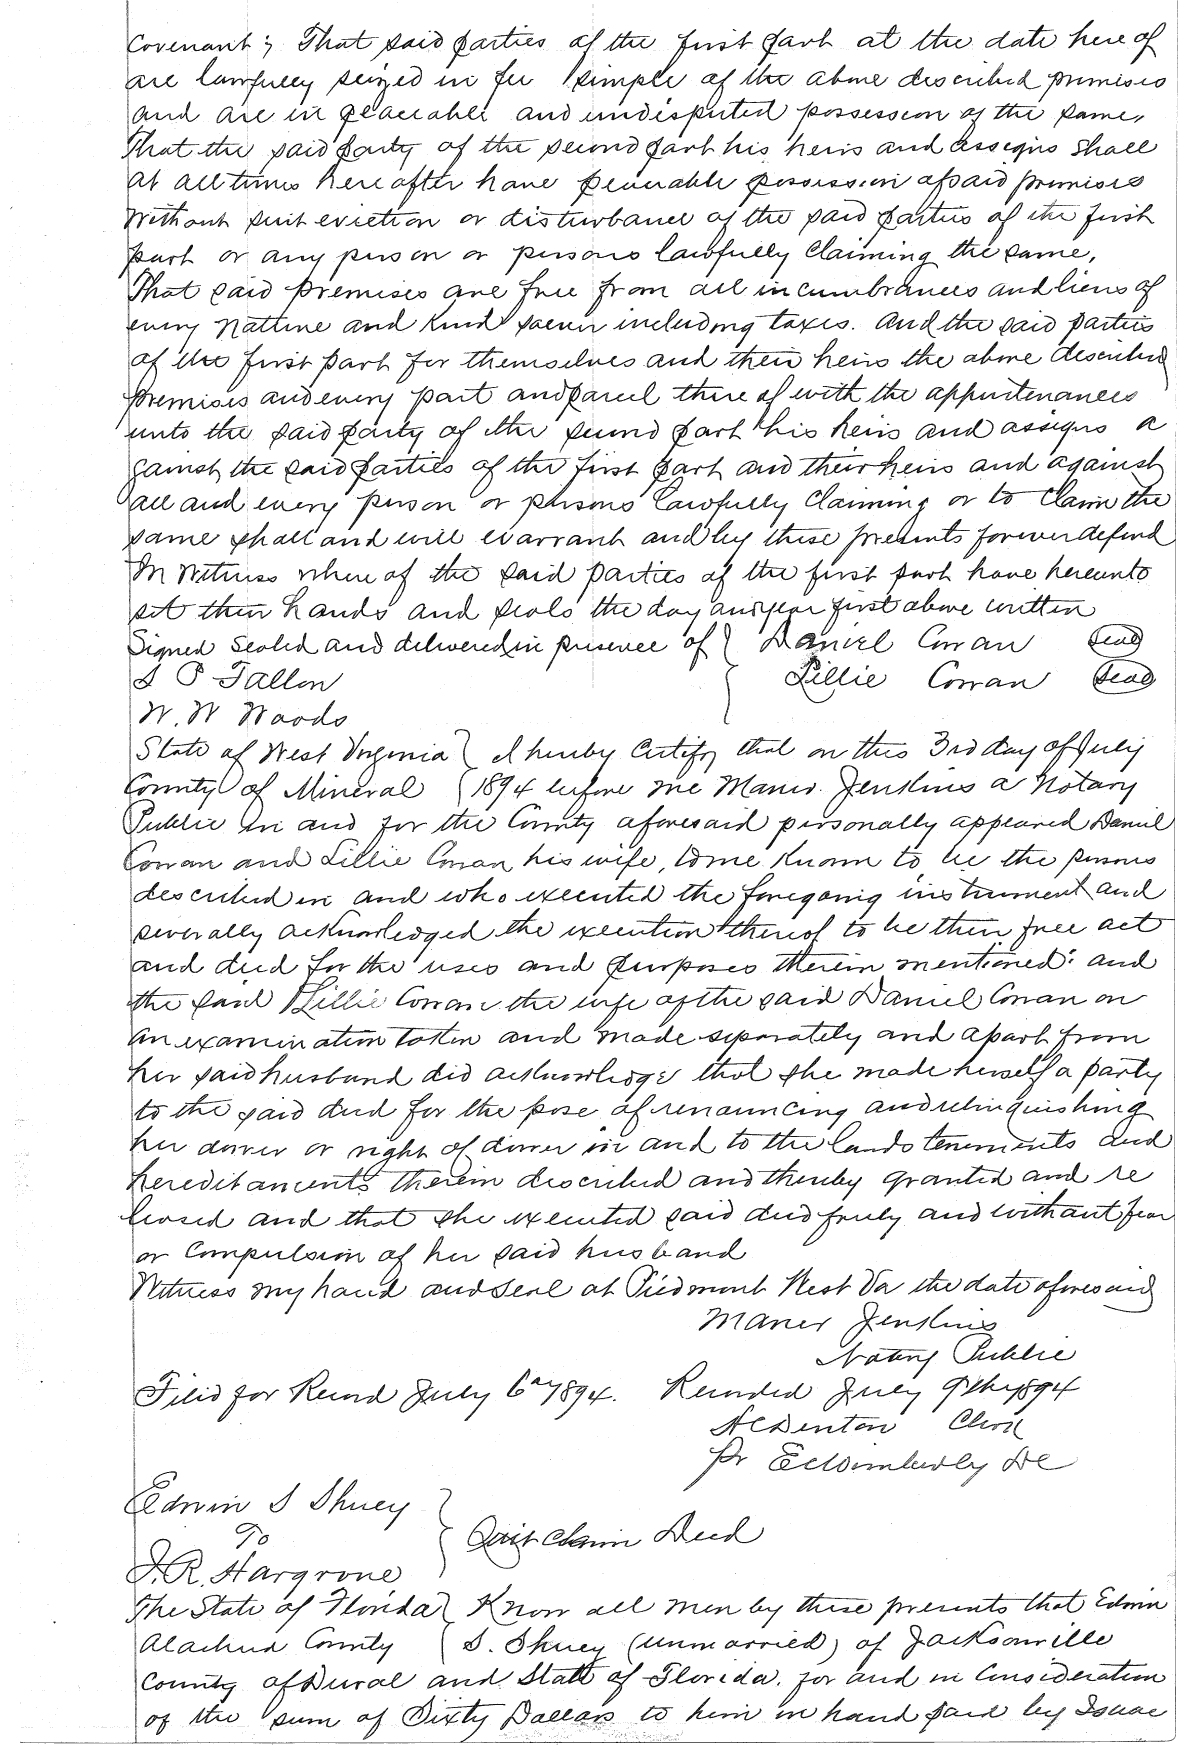 Covenant; That said parties of the first part at the date here of
are lawfully seized in fee simple of the above described premises
and are in peaceable and undisputed possession of the same,
That the said party of the second part his heirs and assigns shall
at all times here after have peaceable possession of said premises
Without suit eviction or disturbance of the said parties of the first
part or any person or persons lawfully claiming the same,
That said premises are free from all incumbrances and liens of
every nature and kind soever including taxes. And the said parties
of the first part for themselves and their heirs the above described
premises and every part and parcel there of with the appurtenances
unto the said party of the second part his heirs and assigns a
gainst the said parties of the first part and their heirs and against
all and every person or persons lawfully claiming or to claim the
same shall and will warrant and by these presents forever defend
In Witness where of the said parties of the first part have hereunto
set their hands and seals the day and year first above written
Signed Sealed and delivered in presence of } Daniel Cowan Seal
S P Fallon } Lillie Cowan Seal
W. W Woods
State of West Virginia } I hereby Certify that on this 3rd day of July
County of Mineral { 1894 before me Maner Jenkins a Notary
Public in and for the County aforesaid personally appeared Daniel
Cowan and Lillie Cowan his wife, to me known to be the persons
described in and who executed the foregoing instrument and
severally acknowledged the execution thereof to be their free act
and deed for the uses and purposes therein mentioned: and
the said Lillie Cowan the wife of the said Daniel Cowan on
an examination taken and made separately and apart from
her said husband did acknowledge that she made herself a party
to the said deed for the pose of renouncing and relinquishing
her dower or right of dower in and to the lands tenements and
hereditaments therein described and thereby granted and re
leased and that she executed said deed freely and without fear
or compulsion of her said husband
Witness my hand and Seal at Piedmont West Va the date aforesaid
Maner Jenkins
Notary Public
Filed for Record July 6th 1894. Recorded July 9th 1894
Denton Clerk
Pr Wimberly DC
Edwin S Shuey }
To { Quit Claim Deed
I. R. Hargrove
The State of Florida } Know all men by these presents that Edwin
Alachua County { S. Shuey (unmarried) of Jacksonville
County of Duval and State of Florida. for and in Consideration
of the sum of Sixty Dollars to him in hand paid by Isaac